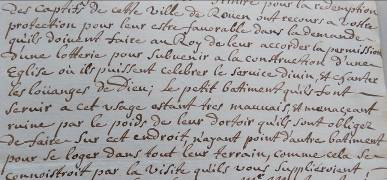 pour la redemption
des Captifs de cette Ville de Rouen ont recours a vostre
protection pour leur estre favorable dans la demande
qu'ils doivent faire au Roy de leur accorder la permission
d'une lotterie pour subvenir a la construction d'une
Eglise où ils puissent celebrer le service divin, et chanter
les loüanges de Dieu; le petit batiment qu'ils font
servir a cet usage estant tres mauvais, et menaçant
ruine par le poids de leur dortoir qu'ils sont obligez
de faire sur cet endroit n'ayant point d'autre batiment
pour se loger dans tout leur terrain, comme cela se
connoistroit par la visite qu'ils vous supplieroient